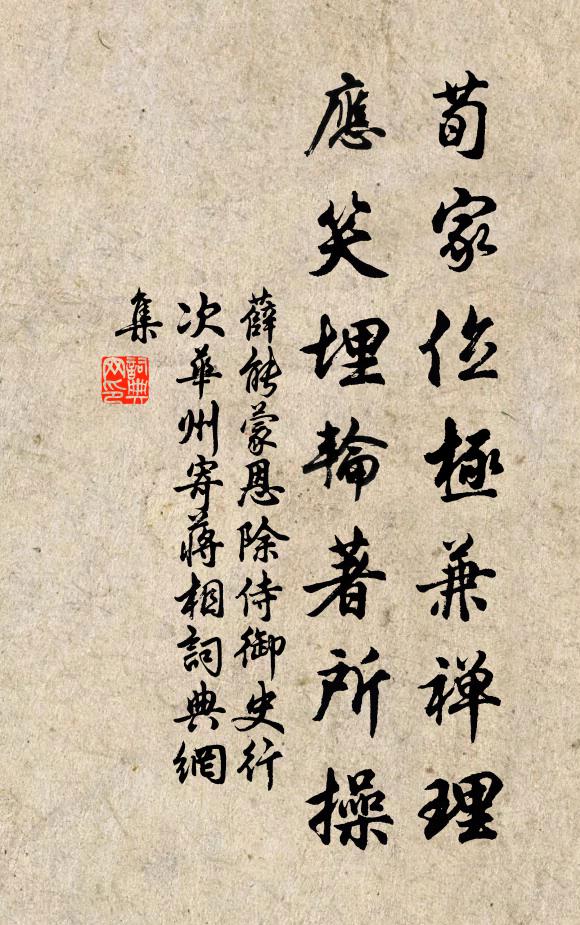 荀家位極兼禅理
應笑埋輪著所操
薛能蒙恩除侍御史行
次華州寄蔣相詞典網
集
詞典
網印